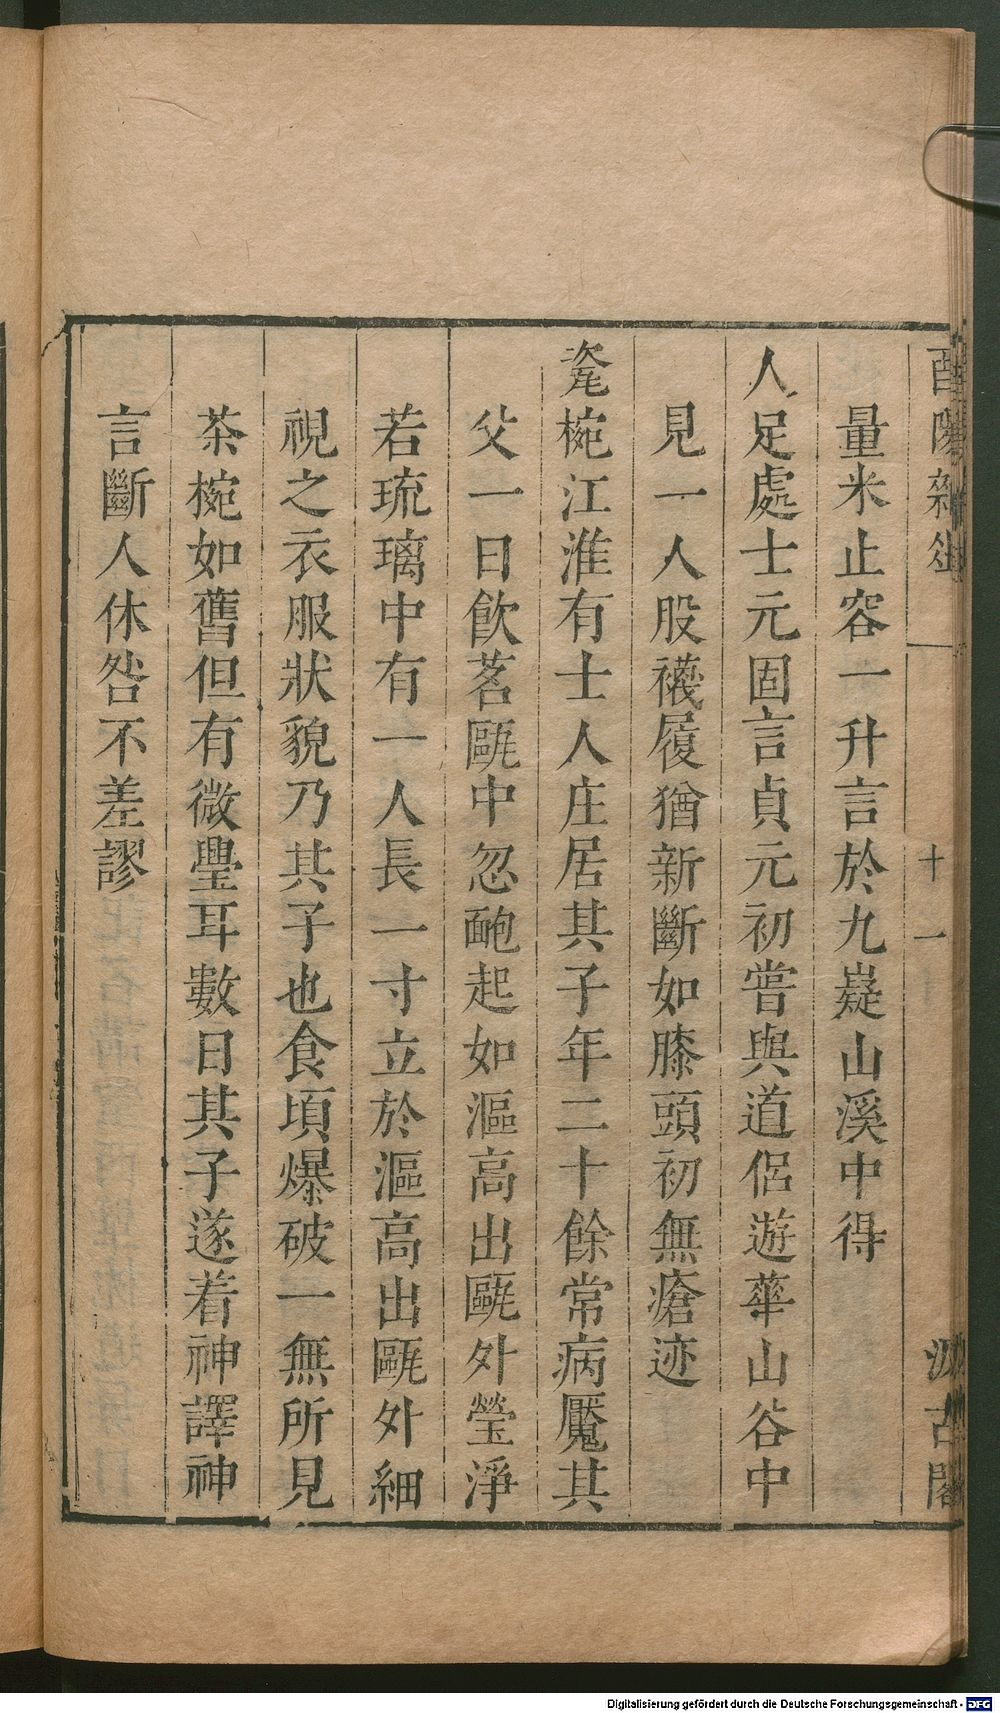 量米止容一升言於九嶷山溪中得
人足處士元固言貞元初嘗與道侶遊華山谷中
見一人股襪履猶新斷如膝頭初無瘡迹
瓷椀江淮有士人庄居其子年二十餘常病魘其
父一日飲茗甌中忽䶌起如漚高出甌外瑩淨
若琉璃中有一人長一寸立於漚高出甌外細
視之衣服狀貌乃其子也食頃爆破一無所見
茶椀如舊但有微璺耳數日其子遂着神譯神
言斷人休咎不差謬
十一
Digitalisierung gefördert durch die Deutsche Forschungsgemeinschaft - DFG